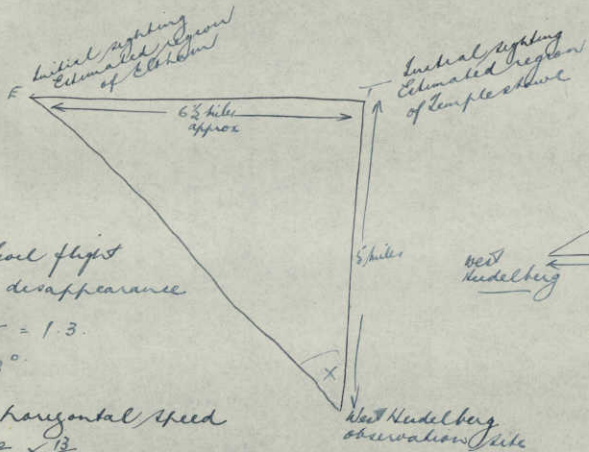 Initial sighting
Estimated region
of Eltham
Initial sighting
Estimated region
of Templestowe
E
T
6½ miles
approx
5 miles
West
Heidelberg
flight
disappearance
= 1.3.
X
horizontal speed
13
West Heidelberg
observation site